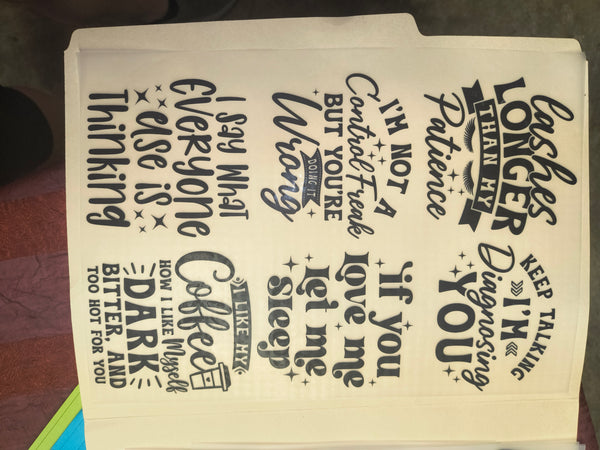 lashes
LONGER
THAN MY
Patience
KEEP TALKING
I'M
Diagnosing
YOU
I'M NOT A
Control Freak
BUT YOU'RE
DOING IT
Wrong
if you
love me
let me
sleep
i say what
everyone
else is
Thinking
I LIKE MY
Coffee
HOW I LIKE Myself
DARK
BITTER, AND
TOO HOT FOR YOU